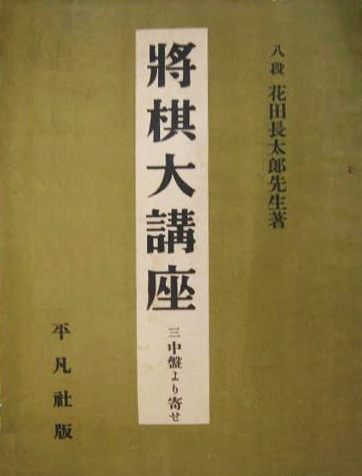 八段 花田長太郎先生著
將棋大講座 三 中盤より寄せ
平凡社版